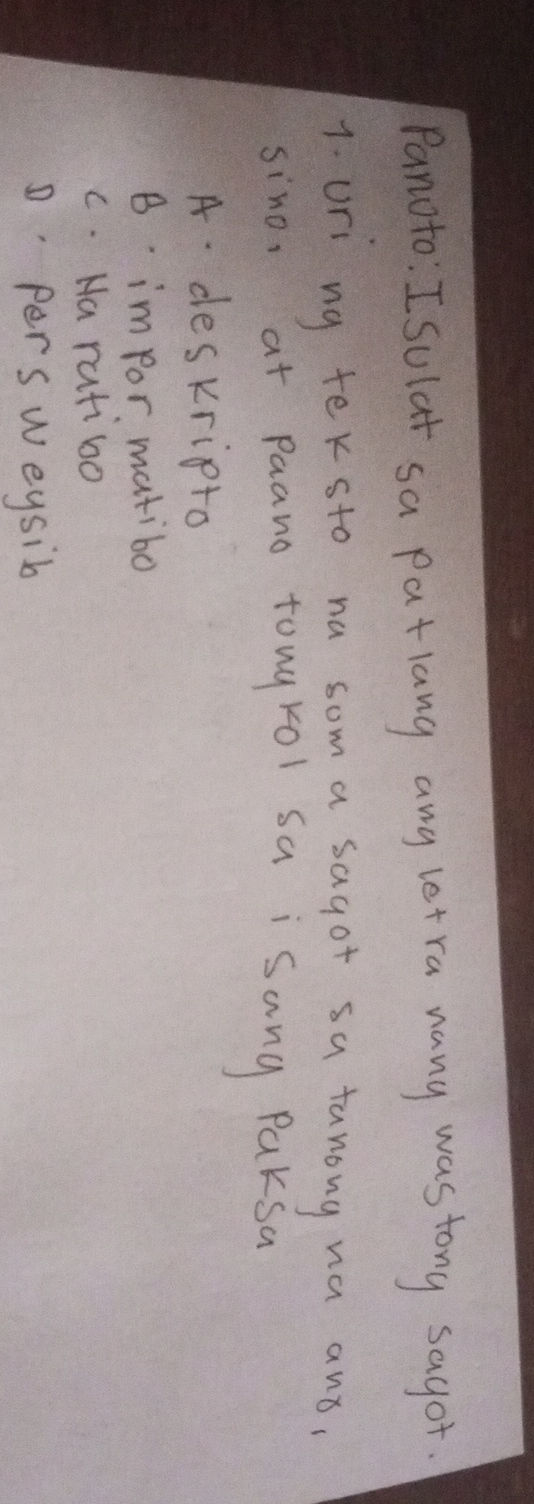 Panuto: Isulat sa patlang ang letra nang wastong sagot.
1. Uri ng teksto na sumasagot sa tanong na ano,
sino, at paano tungkol sa isang paksa
A. deskripto
B. impormatibo
C. Naratibo
D. persweysib